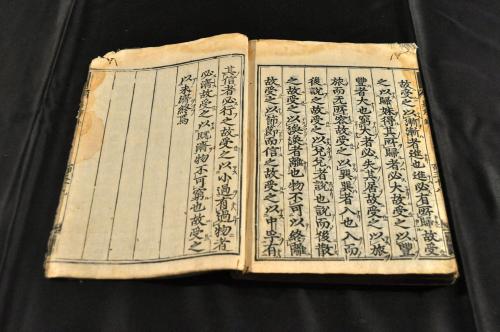 故受之以漸漸者進也進必有所歸故受
之以歸妹得其所歸者必大故受之以豐
豐者大也窮大者必失其居故受之以旅
旅而无所容故受之以巽巽者入也入而
後說之故受之以兌兌者說也說而後散
之故受之以渙渙者離也物不可以終離
故受之以節節而信之故受之以中孚有
其信者必行之故受之以小過有過物者
必濟故受之以既濟物不可窮也故受之
以未濟終焉